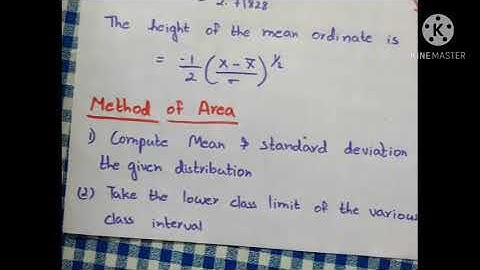 2.71828
The height of the mean ordinate is
= -1/2 (x - x̄/σ)^1/2
Method of Area
1) Compute Mean & standard deviation
the given distribution
(2) Take the lower class limit of the various
class interval
KINEMASTER